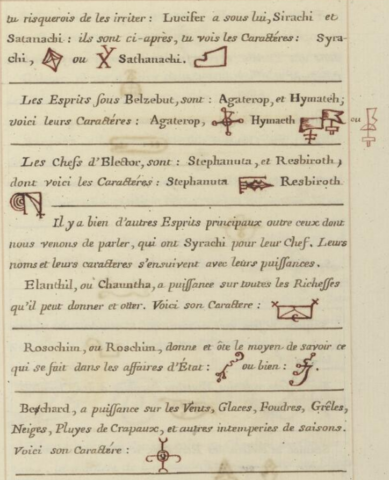 tu risquerois de les irriter : Lucifer a sous lui, Sirachi et
Satanachi : ils sont ci-après, tu vois les Caractéres : Syra-
chi, ou Sathanachi.
Les Esprits sous Belzebut, sont : Agaterop, et Hymateh;
voici leurs Caractéres : Agaterop, Hymaeth ou
Les Chefs d'Elector, sont : Stephanuta, et Resbiroth,
dont voici les Caractéres : Stephanuta Resbiroth
Il y a bien d'autres Esprits principaux outre ceux dont
nous venons de parler, qui ont Syrachi pour leur Chef. Leurs
noms et leurs caracteres s'ensuivent avec leurs puissances.
Elanthil, ou Chauntha, a puissance sur toutes les Richesses
qu'il peut donner et otter. Voici son Caractere :
Rosochim, ou Roschim, donne et ôte le moyen de savoir ce
qui se fait dans les affaires d'État : ou bien : .
Bechard, a puissance sur les Vents, Glaces, Foudres, Grêles,
Neiges, Pluyes de Crapaux, et autres intemperies de saisons.
Voici son Caractére :